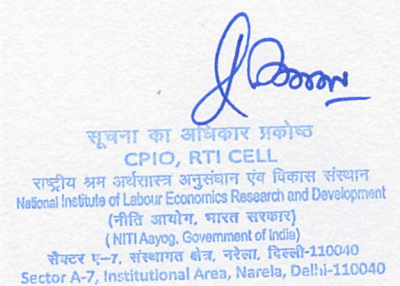 सूचना का अधिकार प्रकोष्ठ
CPIO, RTI CELL
राष्ट्रीय श्रम अर्थशास्त्र अनुसंधान एंव विकास संस्थान
National Institute of Labour Economics Research and Development
(नीति आयोग, भारत सरकार)
(NITI Aayog, Government of India)
सैक्टर ए–7, संस्थागत क्षेत्र, नरेला, दिल्ली-110040
Sector A-7, Institutional Area, Narela, Delhi-110040